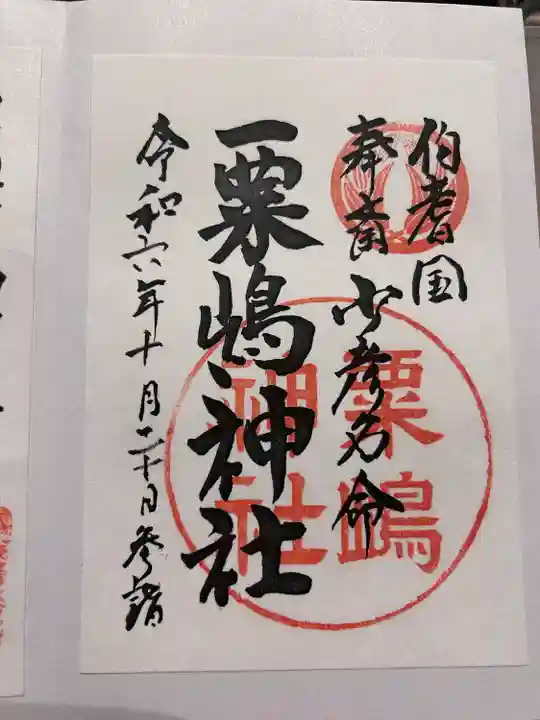 伯耆国
奉斎 少彦名命
粟嶋神社
令和六年十月二十日 参詣
粟嶋
神社